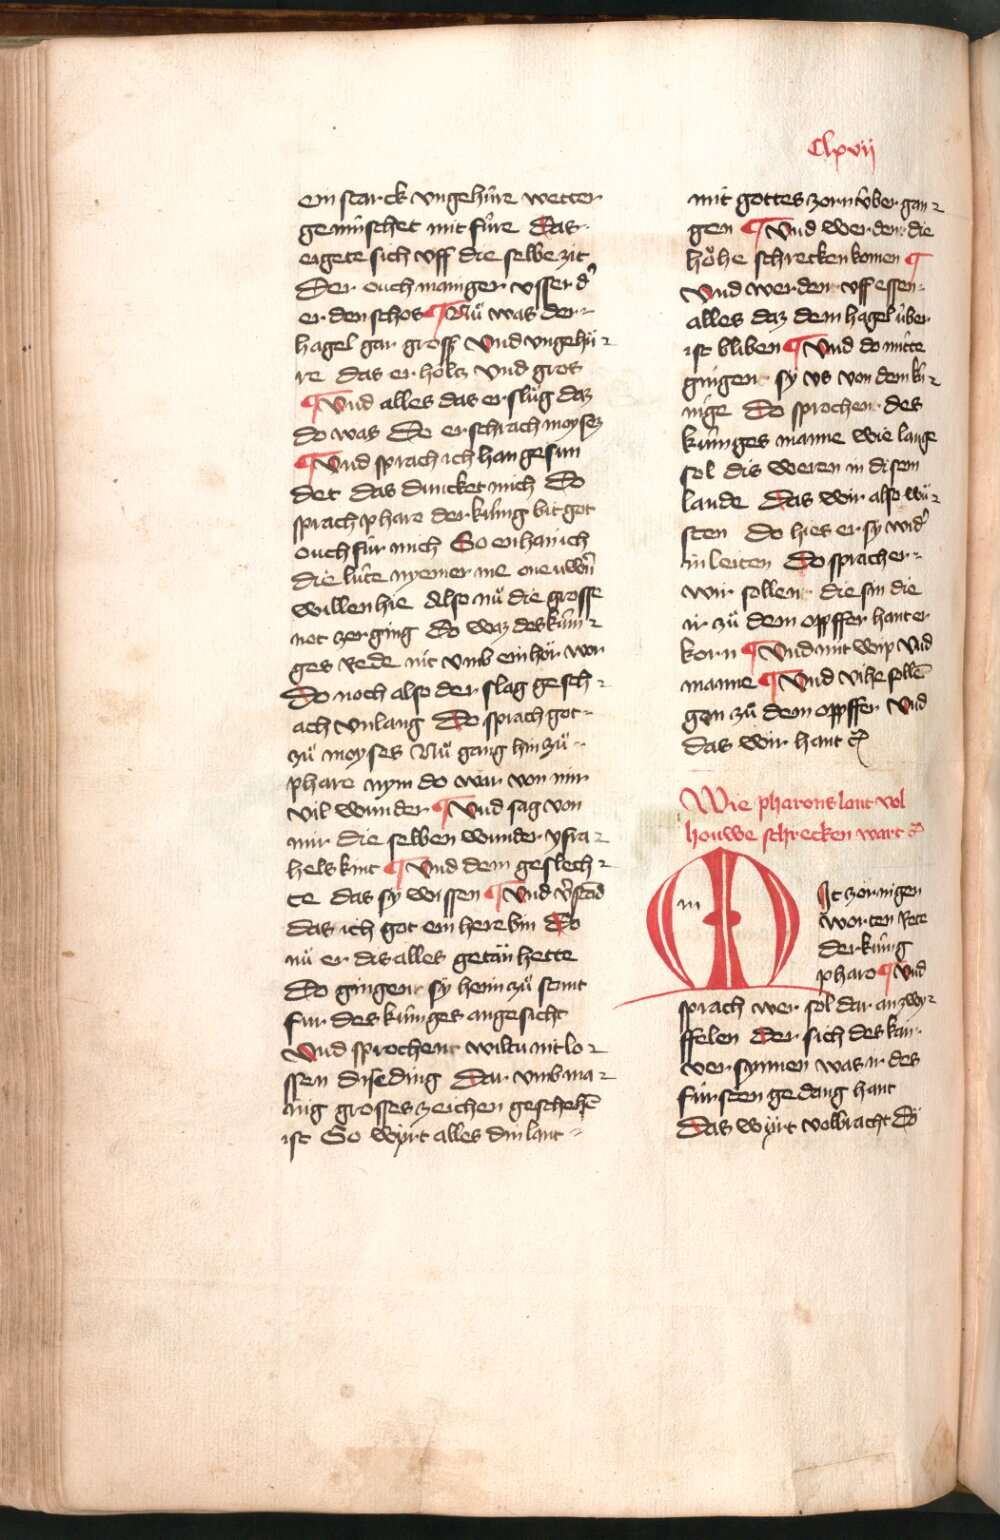 Clxvij
ein starck vngehúre wetter
gemúschet mit fúre Das
eigete sich vff die selbe zit
Der ouch maniger vsser d'
erden schos ¶ Nuͦ was der
hagel gar gross Vnd vngehú
re das er holtz Vnd gros
¶ Vnd alles das er sluͦg daz
do was Do erschrach moyses
¶ Vnd sprach ich han gesun
det das duncket mich Do
sprach phare der kúnig bit got
ouch fúr mich So enhan ich
die lúte nyemer me one uwern̄
willen hie Also nuͦ die grosse
not zerging Do waz des kúni
ges Rede nit vmb ein hor wor
Do noch also der slag gesch
ach vnlang Do sprach got
zuͦ moyses Nuͦ gang hin zuͦ
phare nym do war von mir
vil wunder ¶ Vnd sag von
mir die selben wunder ysra
hels kint ¶ Vnd dem geslech
te das sy wissen ¶ Vnd v̄stād
das ich got ein here bin Do
nuͦ er dis alles getan hette
Do gingent sy hein zuͦ samt
fur des kúniges angesicht
Vnd sprochent wiltu nit lo
ssen dise ding Dar vmb ma
nig grosses zeichen geschehē
ist So wyrt alles din lant
mit gottes zorn úber gan
gen ¶ Vnd werdent die
höhe schrecken komen ¶
Vnd werdent vff essen
alles daz dem hagel úber
ist bliben ¶ Vnd do mitte
gingent sy vs von dem kú
nige Do sprochent des
kúniges manne wie lange
sol dis weren in disem
lande Das wir also wuͦ
sten Do hies er sy wid'
in leiten Do sprach er
wir sollent die sin die
ir zuͦ dem opffer hant er
korn ¶ Vnd mit wip Vnd
manne ¶ Vnd vihe sollē
gan zuͦ dem opffer Vnd
das wir hant ꝛc
Wie pharons lant vol
houwe schrecken wart ꝛc
Mit zornigen
worten Rete
der kúnig
pharo ¶ Vnd
sprach wer sol dar an zwy
ffelen Der sich des kan
versynnen was ir des
fúrsten gedang hant
Das wyrt volbracht Do